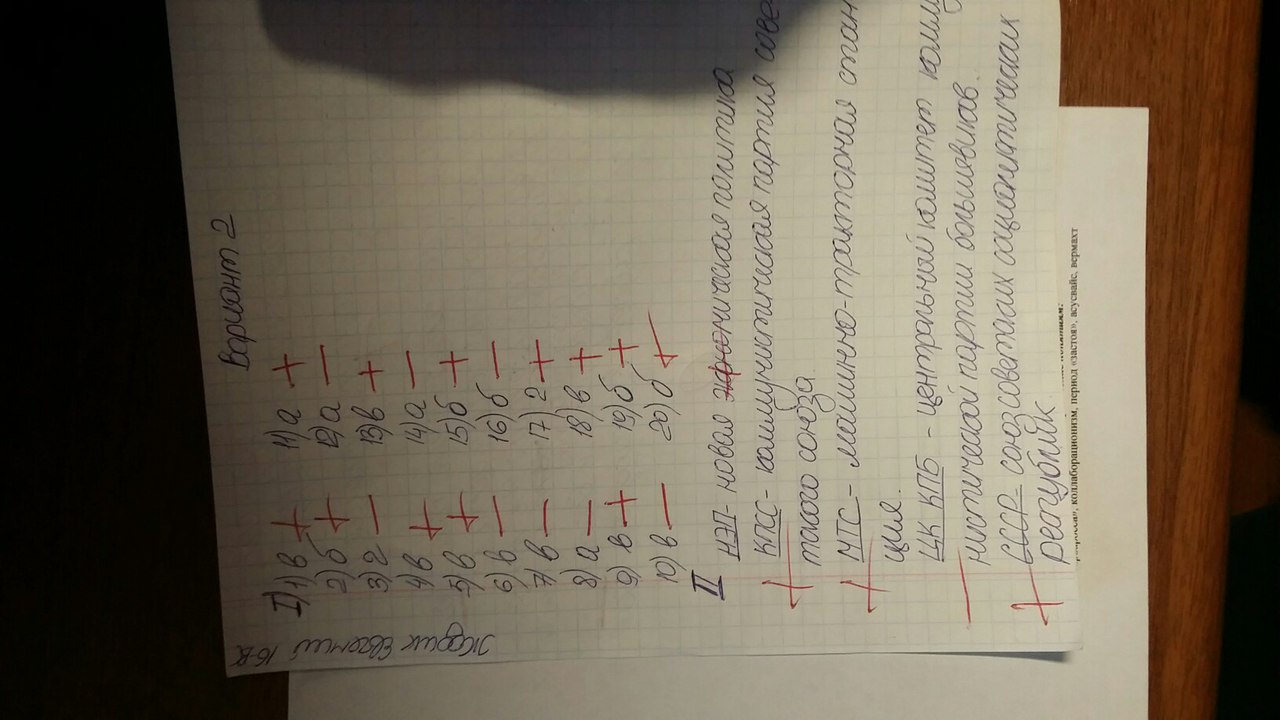 Вариант 2
Жодик Евгений 16-В
I) 1) в +
2) б +
3) г —
4) в +
5) в +
6) в —
7) в —
8) а —
9) в +
10) в —
11) а +
12) а —
13) в +
14) а —
15) б +
16) б —
17) г +
18) в +
19) б +
20) б +
II
НЭП - новая экономическая политика
КПСС - коммунистическая партия сове
тского союза
МТС - машинно-тракторная стан
ция.
ЦК КПБ - центральный комитет комму
нистической партии большевиков.
СССР - союз советских социалистических
республик
коллаборационизм, период «застоя», асусвайс, вермахт